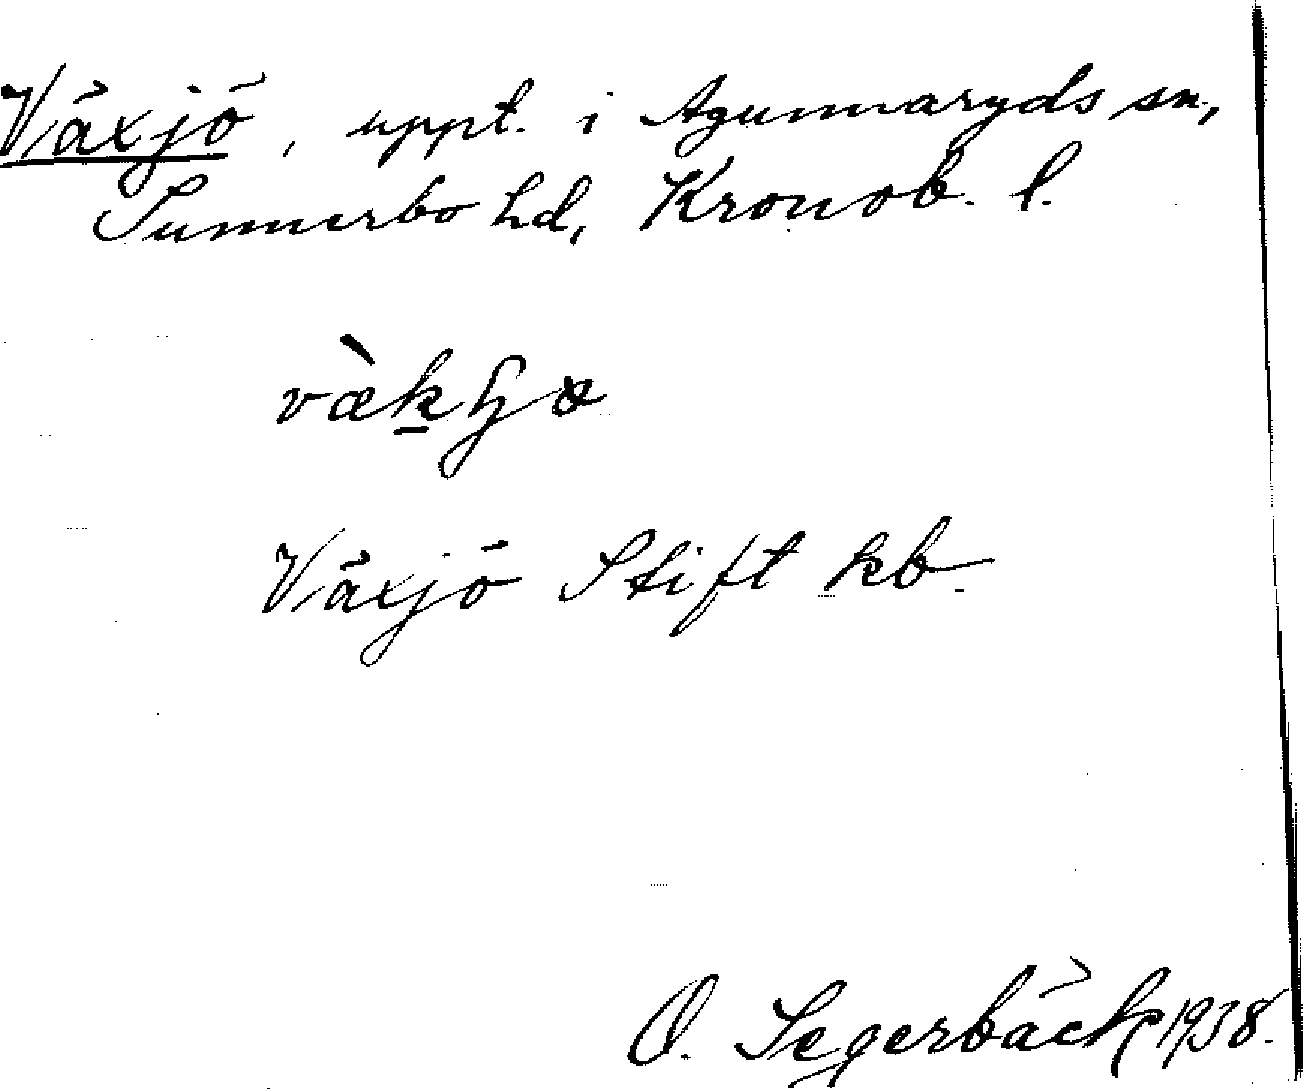 Växjö, uppt. i Agunnaryds sn,
Sunnerbo hd, Kronob. l.
Växjö Stift kb.
O. Segerbäck 1938.